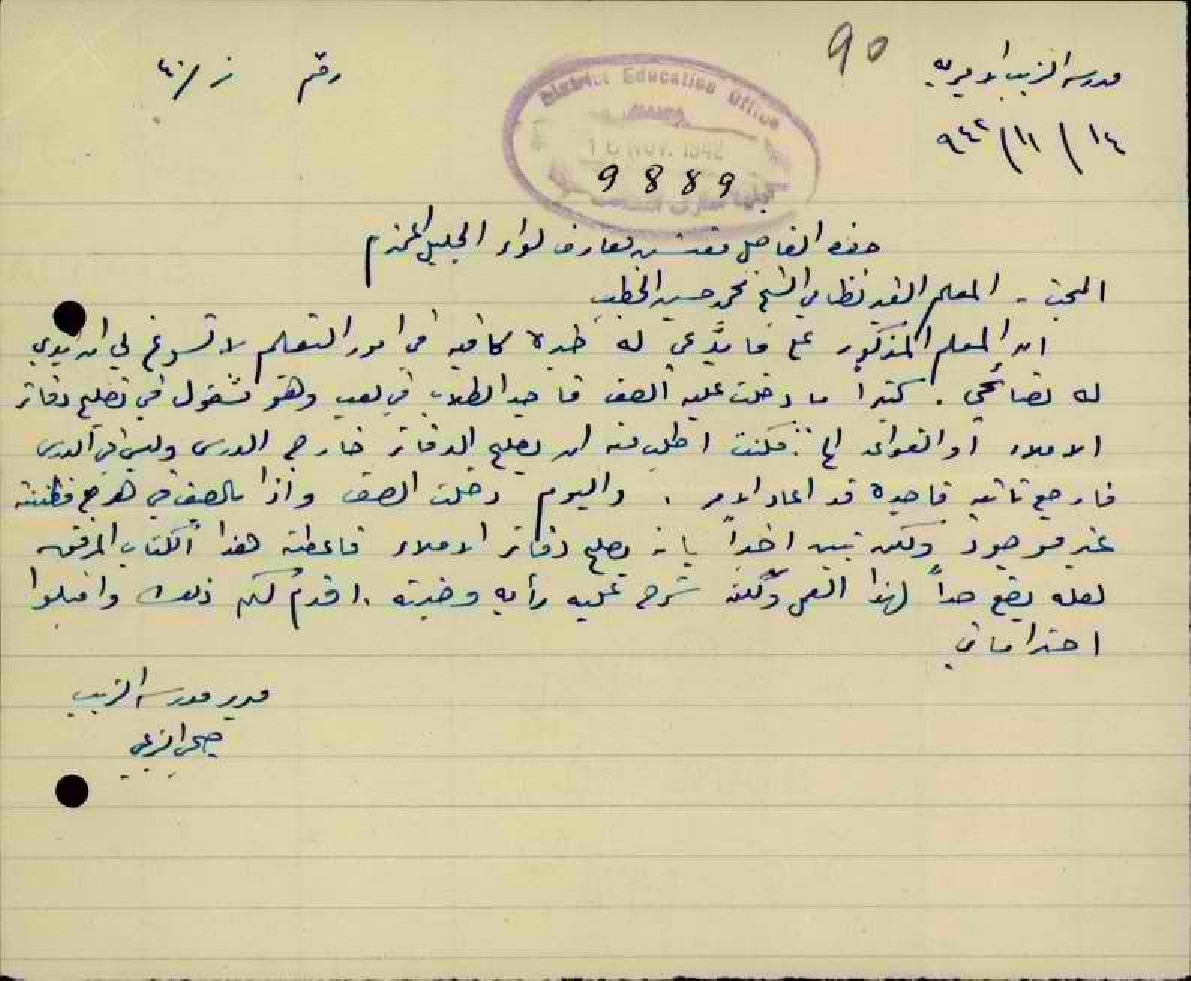 90
مدرسة الزيب الاميرية
رقم ز/٤٠
١٤/١١/٩٤٢
District Education Office
16 NOV. 1942
9889
حضرة الفاضل مفتش معارف لواء الجليل المحترم
المبحث - المعلم الغير نظامي الشيخ محمد حسين الخطيب
ان المعلم المذكور على ما يدَّعي له خبرة كافية في امور التعليم لا تسوغ لي ان
له نصائحي. كثيراً ما دخلت عليه الصف فاجد الطلاب في لعب وهو مشغول في تصليح دفاتر
الاملاء او القواعد الخ. فكنت اطلب منه ان يصلح الدفاتر خارج الدرس وليس في الدرس
فارجع ثانية فاجده قد اعاد الامر. واليوم دخلت الصف واذا بالصف في هرج فظننته
غير موجود ولكن تبين اخيراً بانه يصلح دفاتر الاملاء فاعطيته هذا الكتاب المرفق
لعله يضع حداً لهذا ولكنه شرح عليه رأيه وخبرته. اقدم لكم ذلك واقبلوا
احتراماتي
مدير مدرسة الزيب